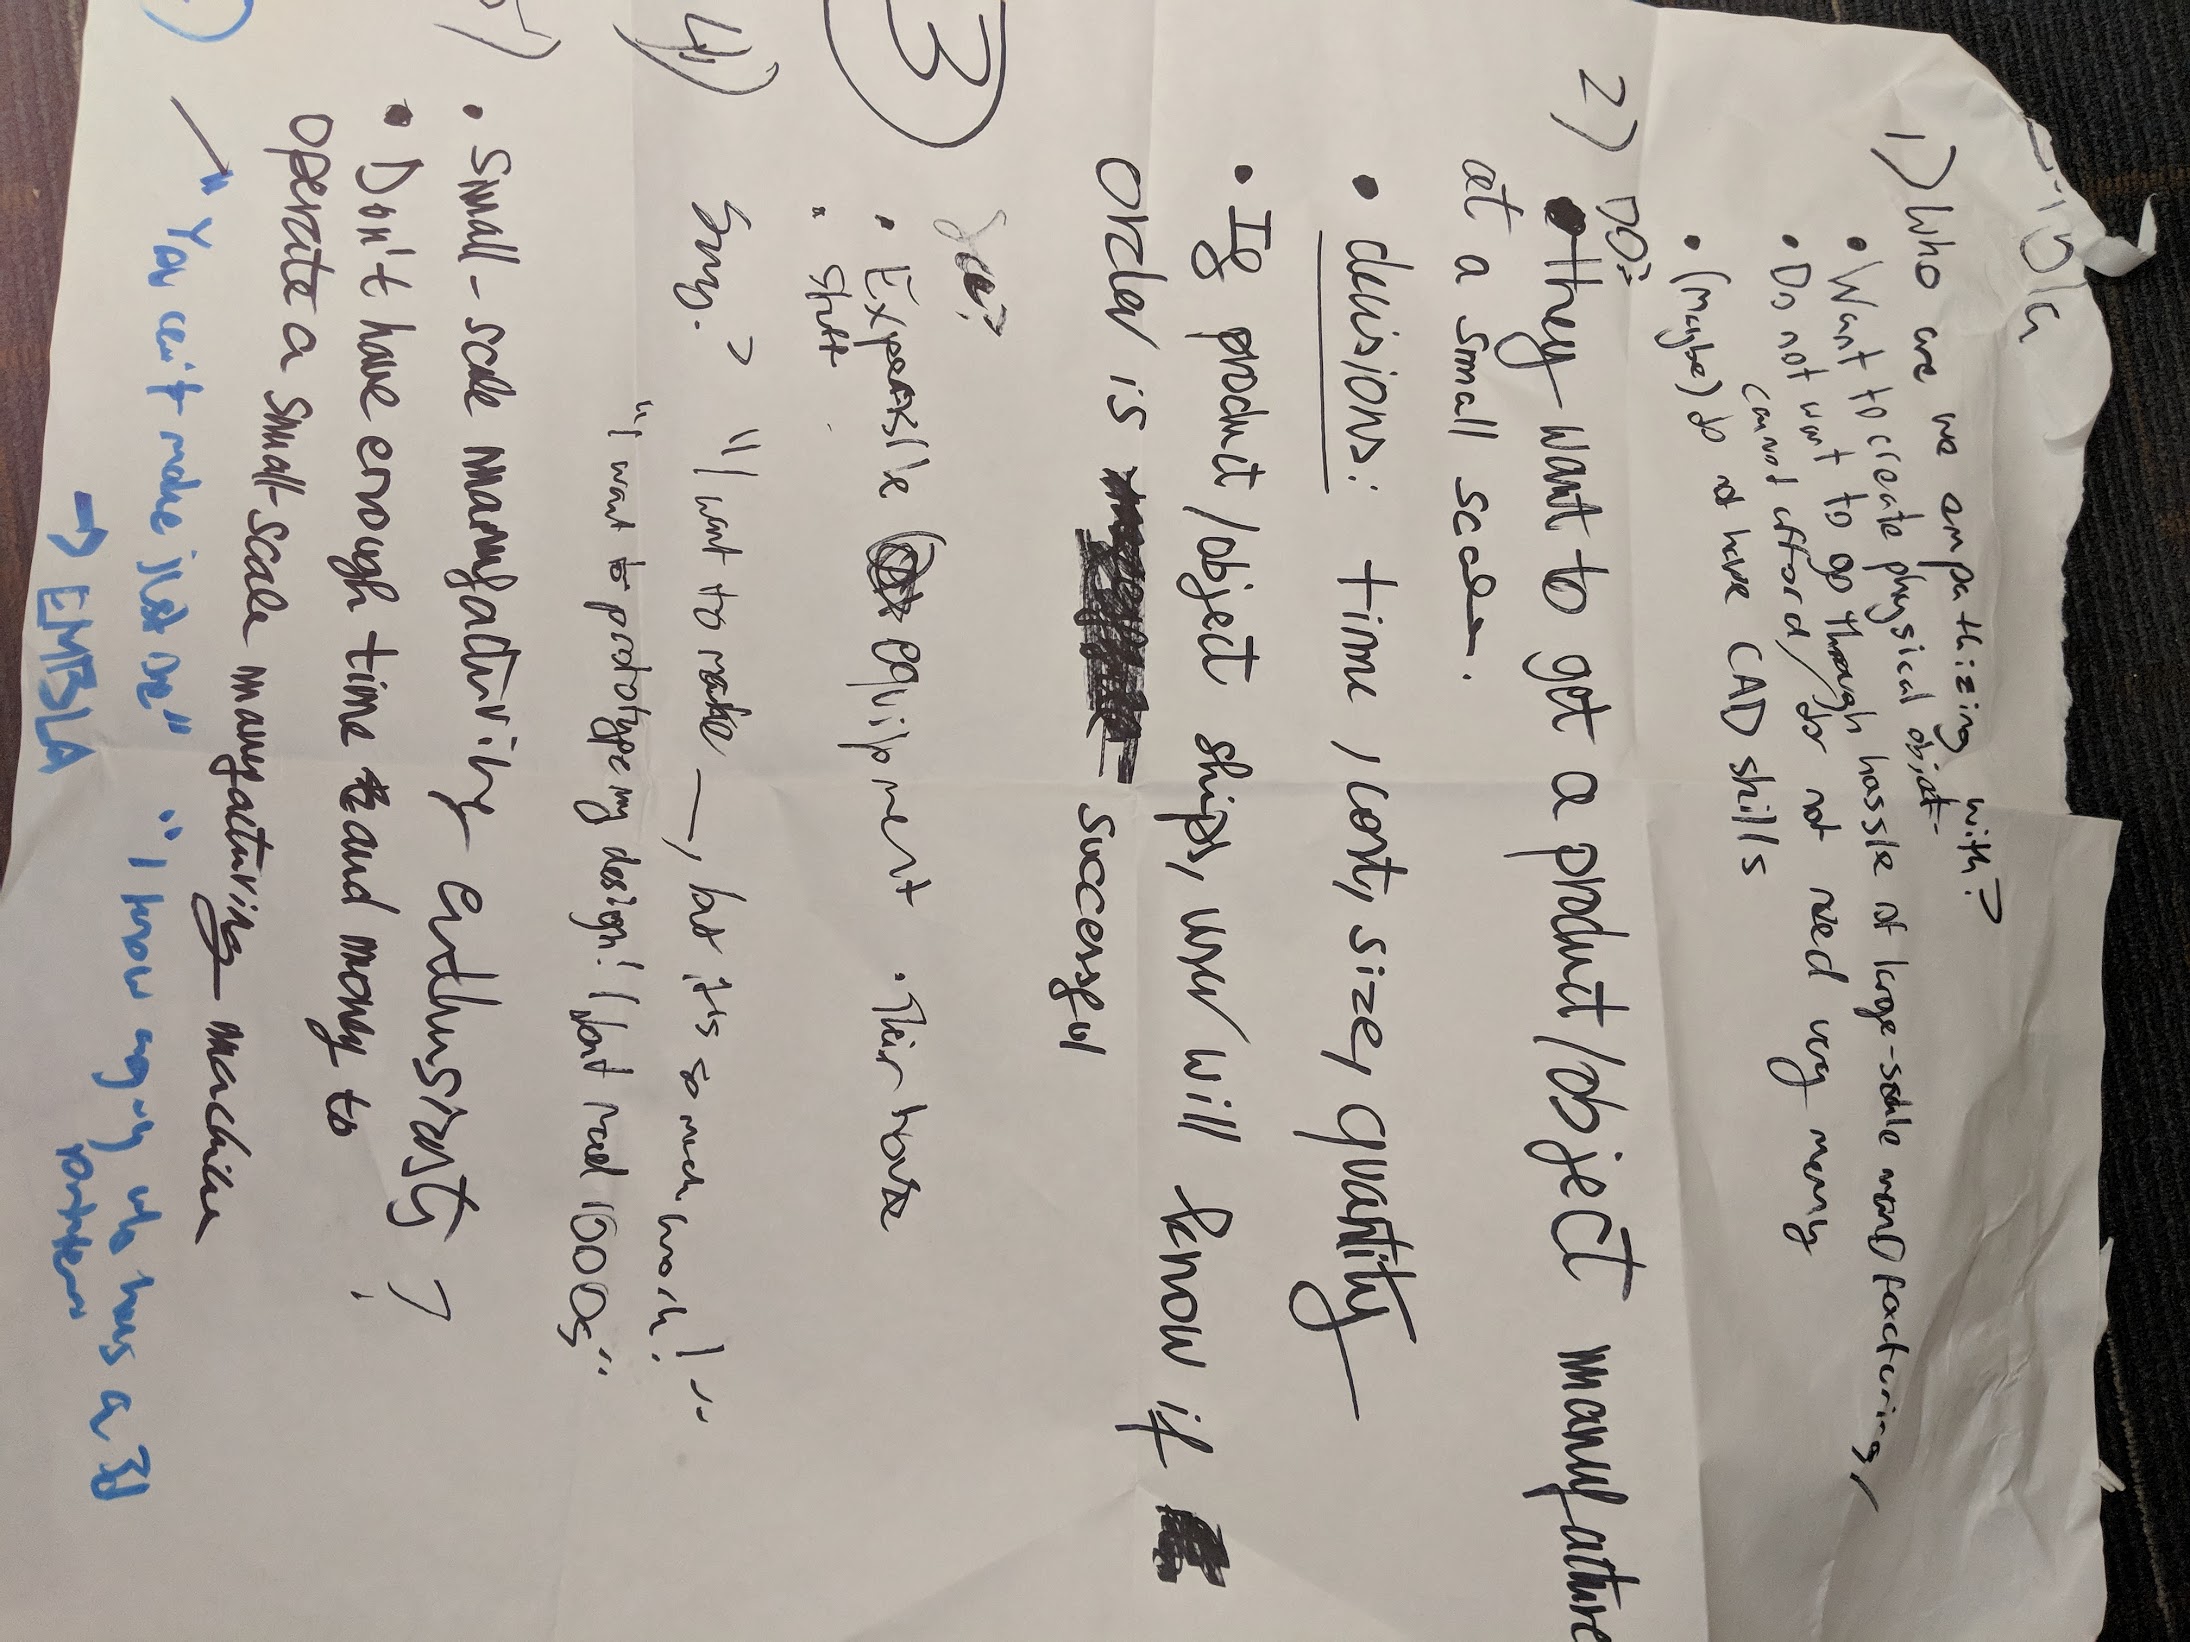 1) Who are we empathizing with?
• Want to create physical object
• Do not want to go through hassle of large-scale manufacturing,
cannot afford / do not need very many
• (maybe) do not have CAD skills
2) DO?
• they want to get a product/object manufacture
at a small scale.
• decisions: time, cost, size, quantity
• If product/object ships, user will know if
order is successful
3
See?
• Expensive equipment • Their house
• Stuff
4)
Say? "I want to make —, but it's so much work!"
"I want to prototype my design! I don't need 1000s"
• Small-scale manufacturing enthusiasts?
• Don't have enough time and money to
operate a small-scale manufacturing machine
"You can't make just one" "I know a guy who has a 3D
printer
→ EMBLA